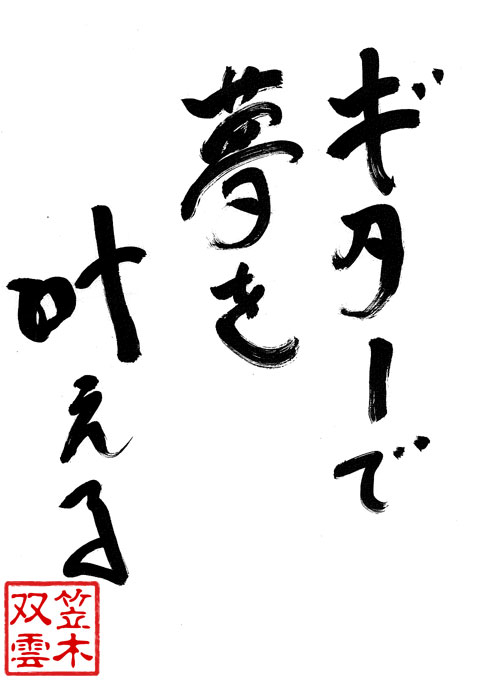 ギターで
夢を
叶える
笠木
双雲